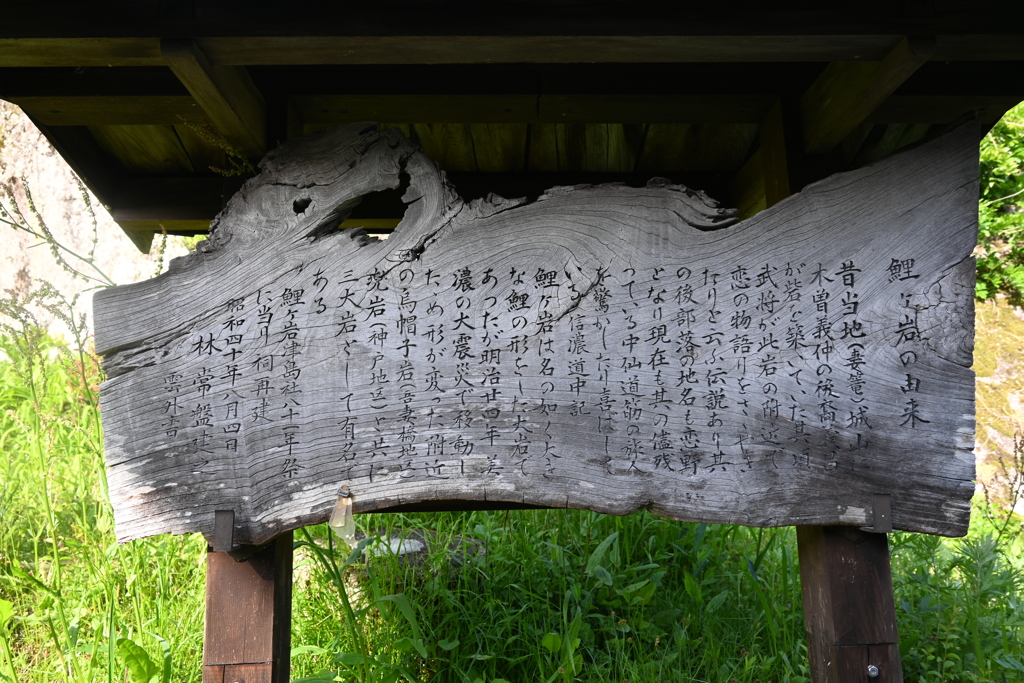 鯉ヶ岩の由来
昔当地(妻籠)城山
木曽義仲の後裔
が砦を築いていた其頃
武将が此岩の附近で
恋の物語りをささやき
たりと云ふ伝説あり其
の後部落の地名も恋野
となり現在も其の儘残
っている中仙道筋の旅人
を驚かしたり喜ばして
いる 信濃道中記
鯉ヶ岩は名の如く大き
な鯉の形をした大岩で
あったが明治廿四年 美
濃の大震災で移動し
ため形が変った附近
の烏帽子岩(吾妻橋地送)
兜岩(神戸地送)と共に
三大岩として有名で
ある
鯉ヶ岩津島社六十一年祭
に当り祠再建
昭和四十年八月四日
林 常盤建之
雲外書